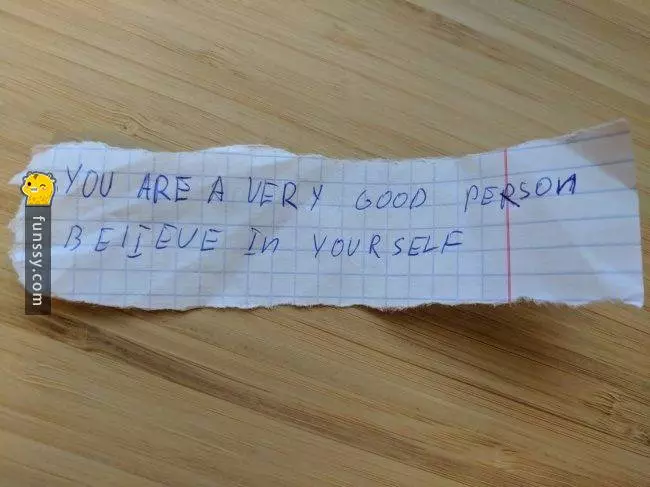 YOU ARE A VERY GOOD PERSON
BELIEVE IN YOURSELF
funssy.com